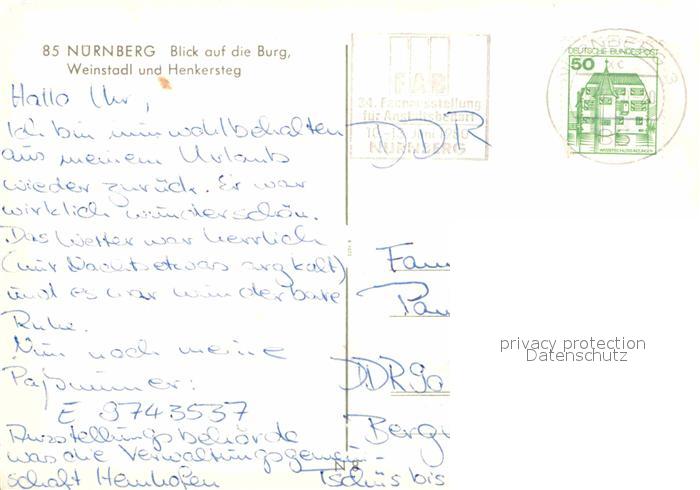 85 NÜRNBERG Blick auf die Burg,
Weinstadl und Henkersteg
Hallo Ihr,
Ich bin nun wohlbehalten
aus meinem Urlaub
wieder zurück. Er war
wirklich wunderschön.
Das Wetter war herrlich
(nur Nachts etwas arg kalt)
und es war wunderbare
Ruhe.
Nun noch meine
Paßnummer:
E 9743537
Ausstellungsbehörde
was die Verwaltungsgemein-
schaft Hemhofen
Tschüs bis
FAB
24. Fachausstellung
für Anstaltsbedarf
1980
NÜRNBERG
DEUTSCHE BUNDESPOST
50
WASSERSCHLOSS INZLINGEN
DDR
Fam
Pau
DDR 90
Berg
privacy protection
Datenschutz